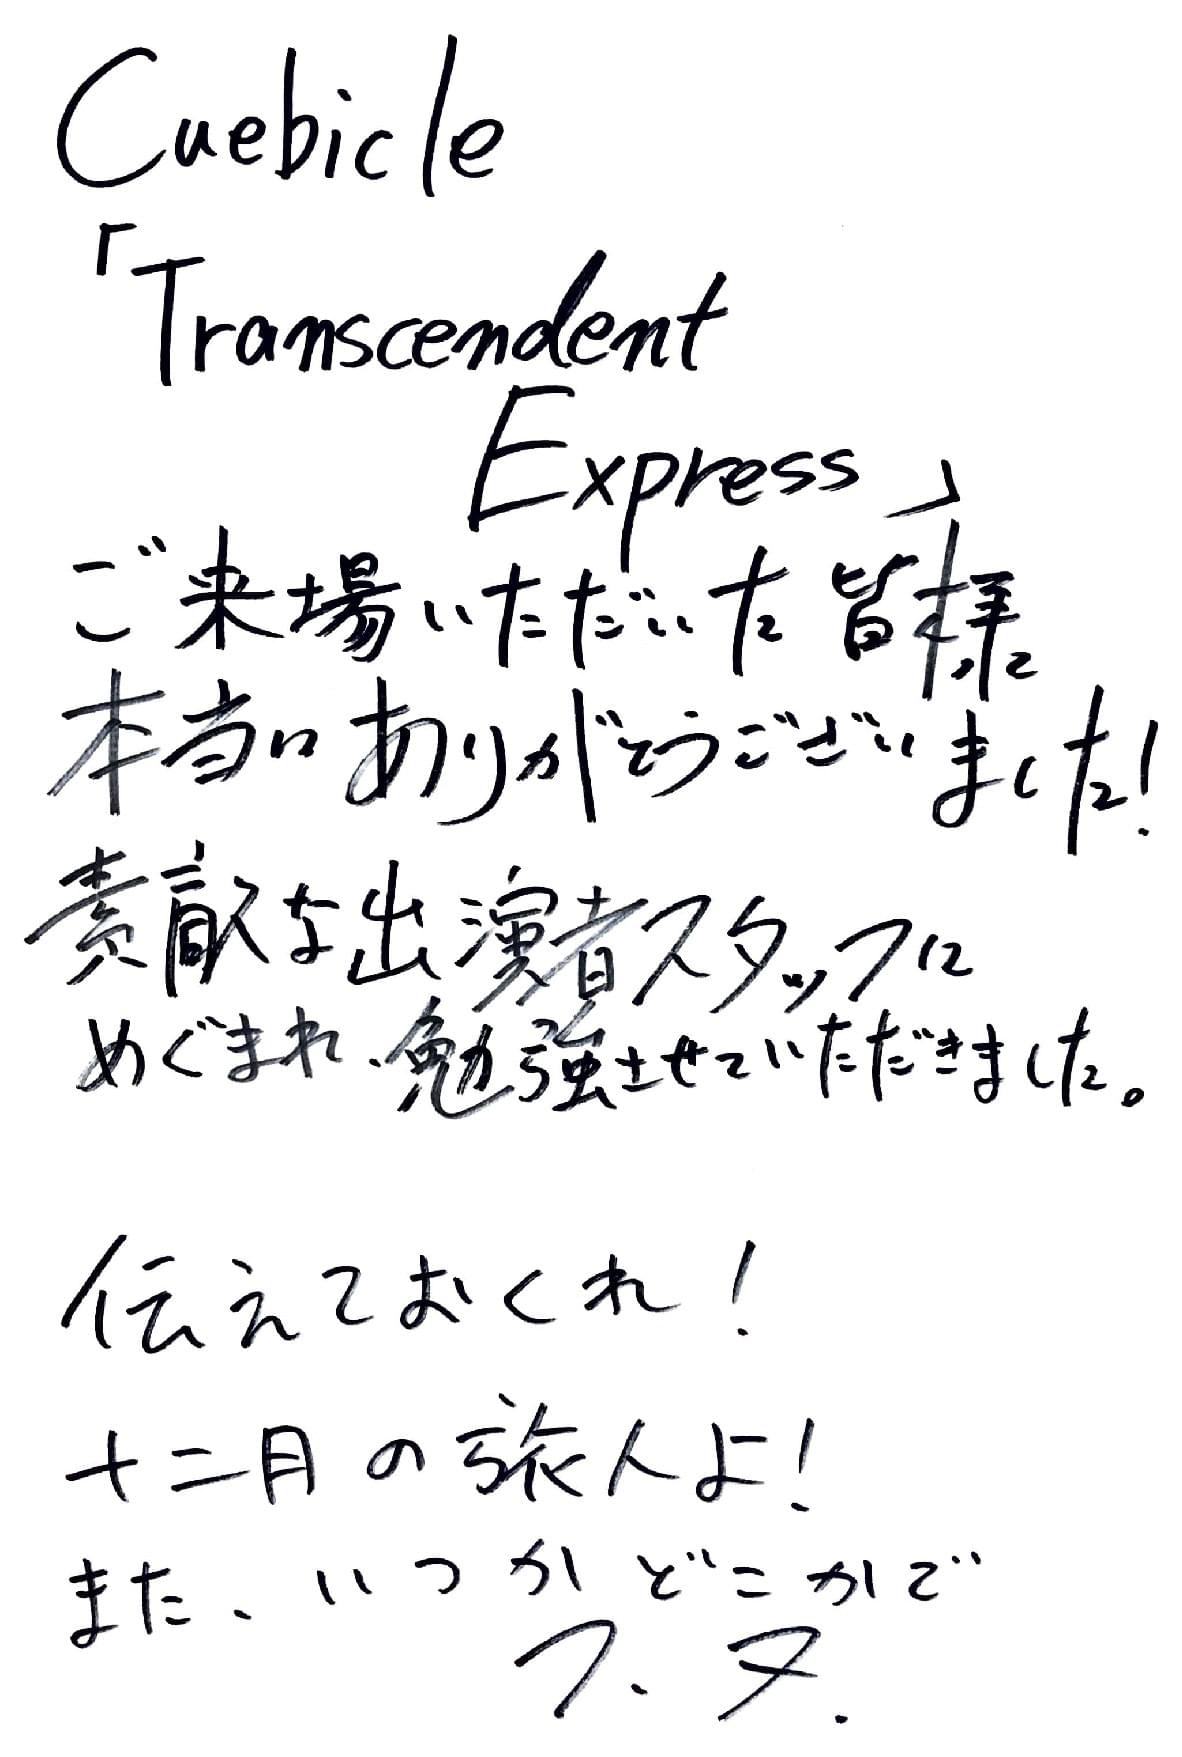 Cuebicle
「Transcendent
Express」
ご来場いただいた皆様
本当にありがとうございました！
素敵な出演者スタッフに
めぐまれ、勉強させていただきました。
伝えておくれ！
十二月の旅人よ！
また、いつかどこかで
フ.ヌ.